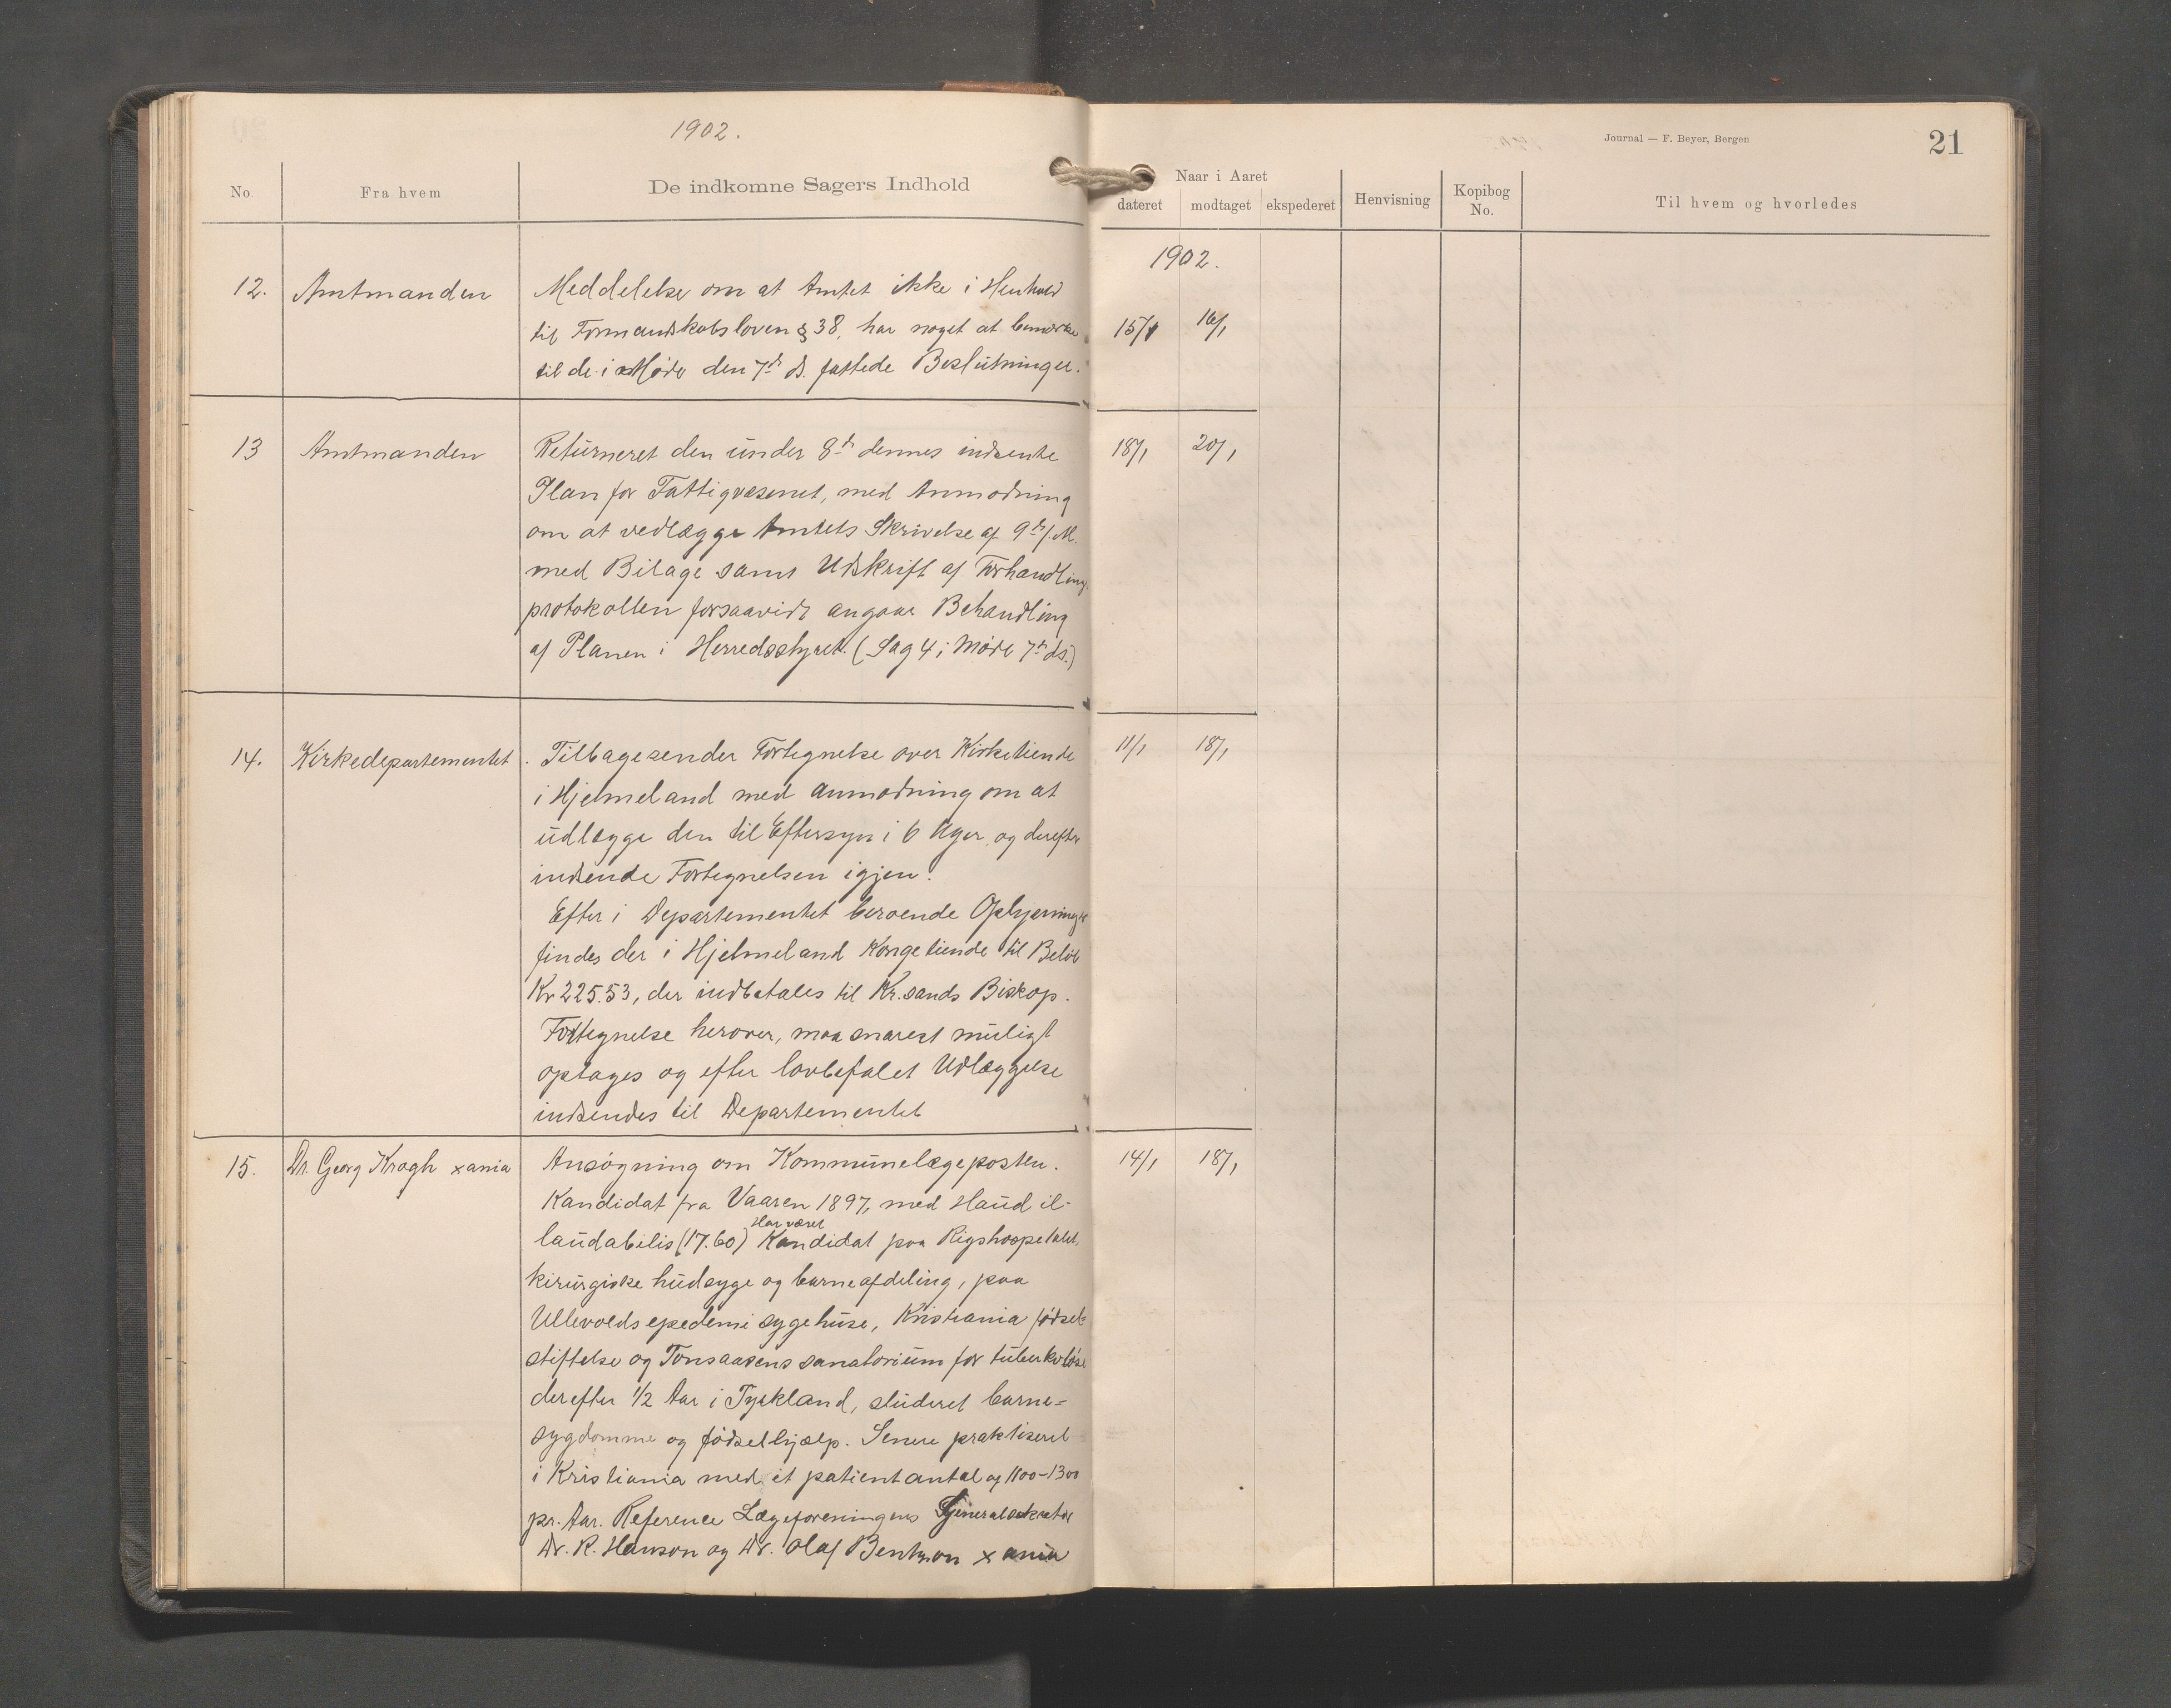 1902.
Journal — F. Beyer, Bergen
21
No.
Fra hvem
De indkomne Sagers Indhold
Naar i Aaret
dateret
modtaget
ekspederet
Henvisning
Kopibog
No.
Til hvem og hvorledes
1902.
12.
Amtmanden
Meddelelse om at Amtet ikke i Henhold
til Formandskabsloven § 38, har noget at bemærke
til de i Møde den 7de ds. fattede Beslutninger.
15/1
16/1
13
Amtmanden
Returneret den under 8de dennes indsente
Plan for Fattigvæsenet, med Anmodning
om at vedlægge Amtets Skrivelse af 9de f. M.
med Bilage samt Udskrift af Forhandlings
protokollen forsaavidt angaar Behandling
af Planen i Herredsstyret. (Sag 4 i Møde 7de ds.)
18/1
20/1
14.
Kirkedepartementet
Tilbagesender Fortegnelse over Kirketiende
i Hjelmeland med anmodning om at
udlægge den til Eftersyn i 6 Uger, og derefter
indsende Fortegnelsen igjen.
Efter i Departementet beroende Oplysninger
findes der i Hjelmeland Kongetiende til Beløb
Kr 225.53, der indbetales til Kr.sands Biskop.
Fortegnelse herover, maa snarest muligt
optages og efter lovbefalet Udlæggelse
indsendes til Departementet
11/1
18/1
15.
Dr. Georg Krogh xania
Ansøgning om Kommunelægeposten.
Kandidat fra Vaaren 1897, med Haud il-
Har været
laudabilis (17.60) Kandidat paa Rigshospetalet,
kirurgiske hudsyge og barneafdeling, paa
Ullevolds epedemi sygehuse, Kristiania fødsel-
stiftelse og Tonsaasens sanatorium for tuberkuløse
derefter 1/2 Aar i Tyskland, studeret barne-
sygdomme og fødselhjælp. Senere praktiseret
i Kristiania med et patientantal af 1100-1300
pr. Aar. Reference Lægeforeningens Generalsekretær
Dr. R. Hanson og Dr. Olaf Bentzon xania
14/1
18/1